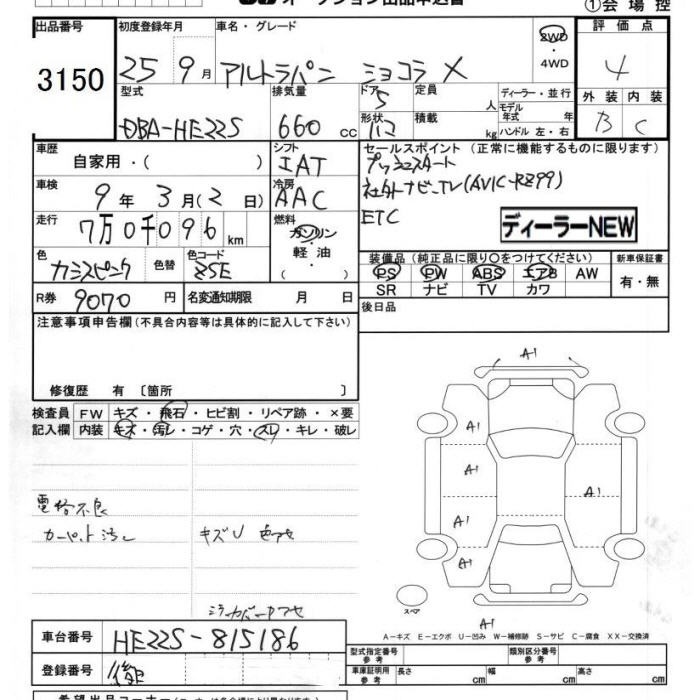 オークション出品申込書
①会場控
出品番号
3150
初度登録年月
25 9月
車名・グレード
アルトラパン ショコラ X
2WD
・
4WD
評価点
4
型式
DBA-HE22S
排気量
660 cc
ドア
5
形状
定員
人
積載
kg
ディーラー・並行
モデル
年式 年
ハンドル 左・右
外装 内装
B C
車歴
自家用・( )
シフト
IAT
セールスポイント(正常に機能するものに限ります)
プッシュスタート
社外ナビ・TV(AVIC-RZ99)
ETC
ディーラーNEW
車検
9年 3月(2日)
冷房
AAC
走行
7万0千096 km
燃料
ガソリン
・
軽油
・
( )
色
カシスピンク
色替
色コード
ZSE
R券
9070 円
名変通知期限 月 日
装備品(純正品に限り○をつけてください)
PS PW ABS エアB AW
SR ナビ TV カワ
新車保証書
有・無
後日品
注意事項申告欄(不具合内容等は具体的に記入して下さい)
修復歴 有〔箇所 〕
検査員
記入欄
FW キズ・飛石・ヒビ割・リペア跡・×要
内装 キズ・汚レ・コゲ・穴・スレ・キレ・破レ
電格不良
カーペット汚レ
キズU 色アセ
ミラーカバーアセ
A1
A1
A1
A1
A1
A1
A1
スペア
A-キズ E-エクボ U-凹み W-補修跡 S-サビ C-腐食 XX-交換済
車台番号
HE22S-815186
登録番号
後日
型式指定番号
参考
類別区分番号
参考
車庫証明用
参考
長さ cm
幅 cm
高さ cm